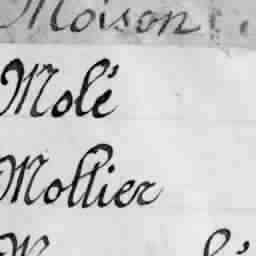 Moison
Molé
Mollier